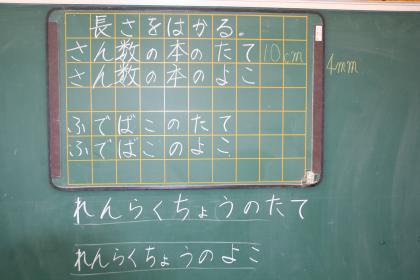 長さをはかる。
さん数の本のたて10cm 4mm
さん数の本のよこ
ふでばこのたて
ふでばこのよこ
れんらくちょうのたて
れんらくちょうのよこ